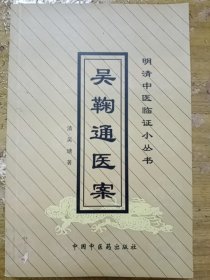 明清中医临证小丛书
吴鞠通医案
清·吴瑭 著
中国中医药出版社